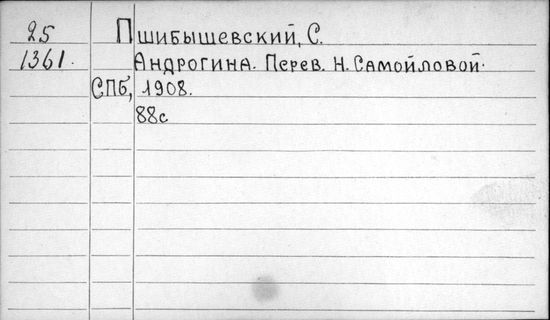 25 Пшибышевский, С.
1361. Андрогина. Перев. Н. Самойловой.
СПб, 1908.
88с